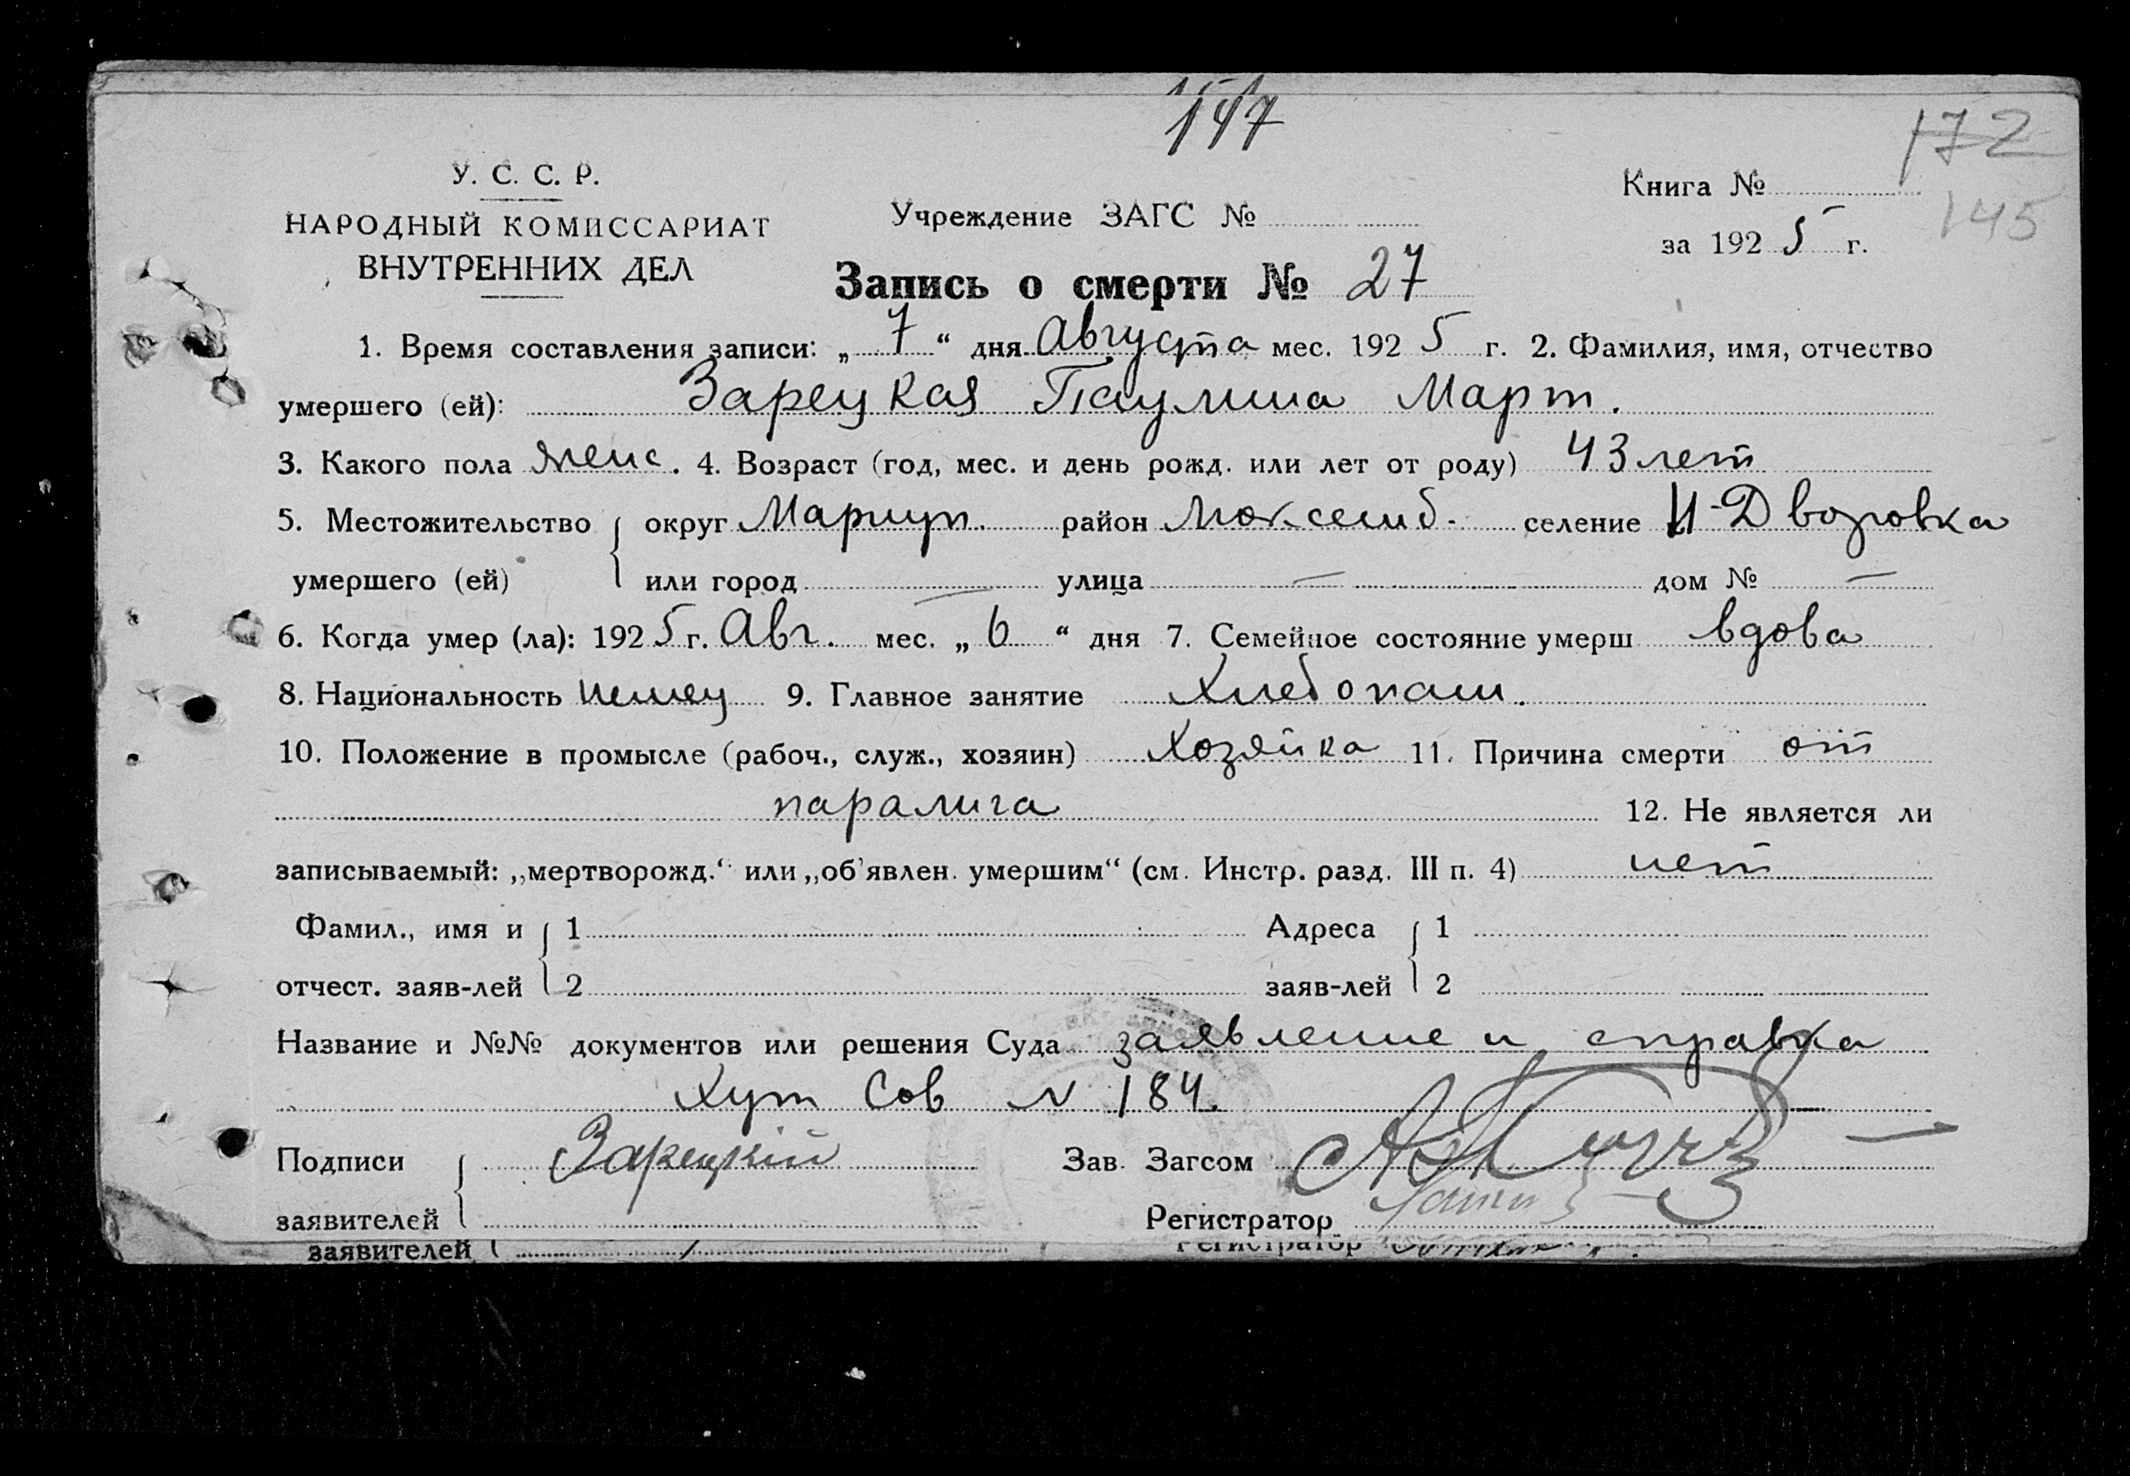 147
172
145
У. С. С. Р.
НАРОДНЫЙ КОМИССАРИАТ
ВНУТРЕННИХ ДЕЛ
Учреждение ЗАГС №
Книга №
за 1925 г.
Запись о смерти № 27
1. Время составления записи: „ 7 “ дня Августа мес. 1925 г. 2. Фамилия, имя, отчество
умершего (ей): Зарецкая Паулина Март.
3. Какого пола женс. 4. Возраст (год, мес. и день рожд. или лет от роду) 43 лет
5. Местожительство округ Мариуп. район Люксемб. селение Н-Дворовка
умершего (ей) или город — улица — дом № —
6. Когда умер (ла): 1925 г. Авг. мес. „ 6 “ дня 7. Семейное состояние умерш вдова
8. Национальность немец 9. Главное занятие Хлебопаш.
10. Положение в промысле (рабоч., служ., хозяин) Хозяйка 11. Причина смерти от
паралича 12. Не является ли
записываемый: „мертворожд.“ или „об'явлен. умершим“ (см. Инстр. разд. III п. 4) нет
Фамил., имя и 1 Адреса 1
отчест. заяв-лей 2 заяв-лей 2
Название и №№ документов или решения Суда заявление и справка
Хут Сов № 184.
Подписи Зарецкій Зав. Загсом
заявителей Регистратор
заявителей Регистратор